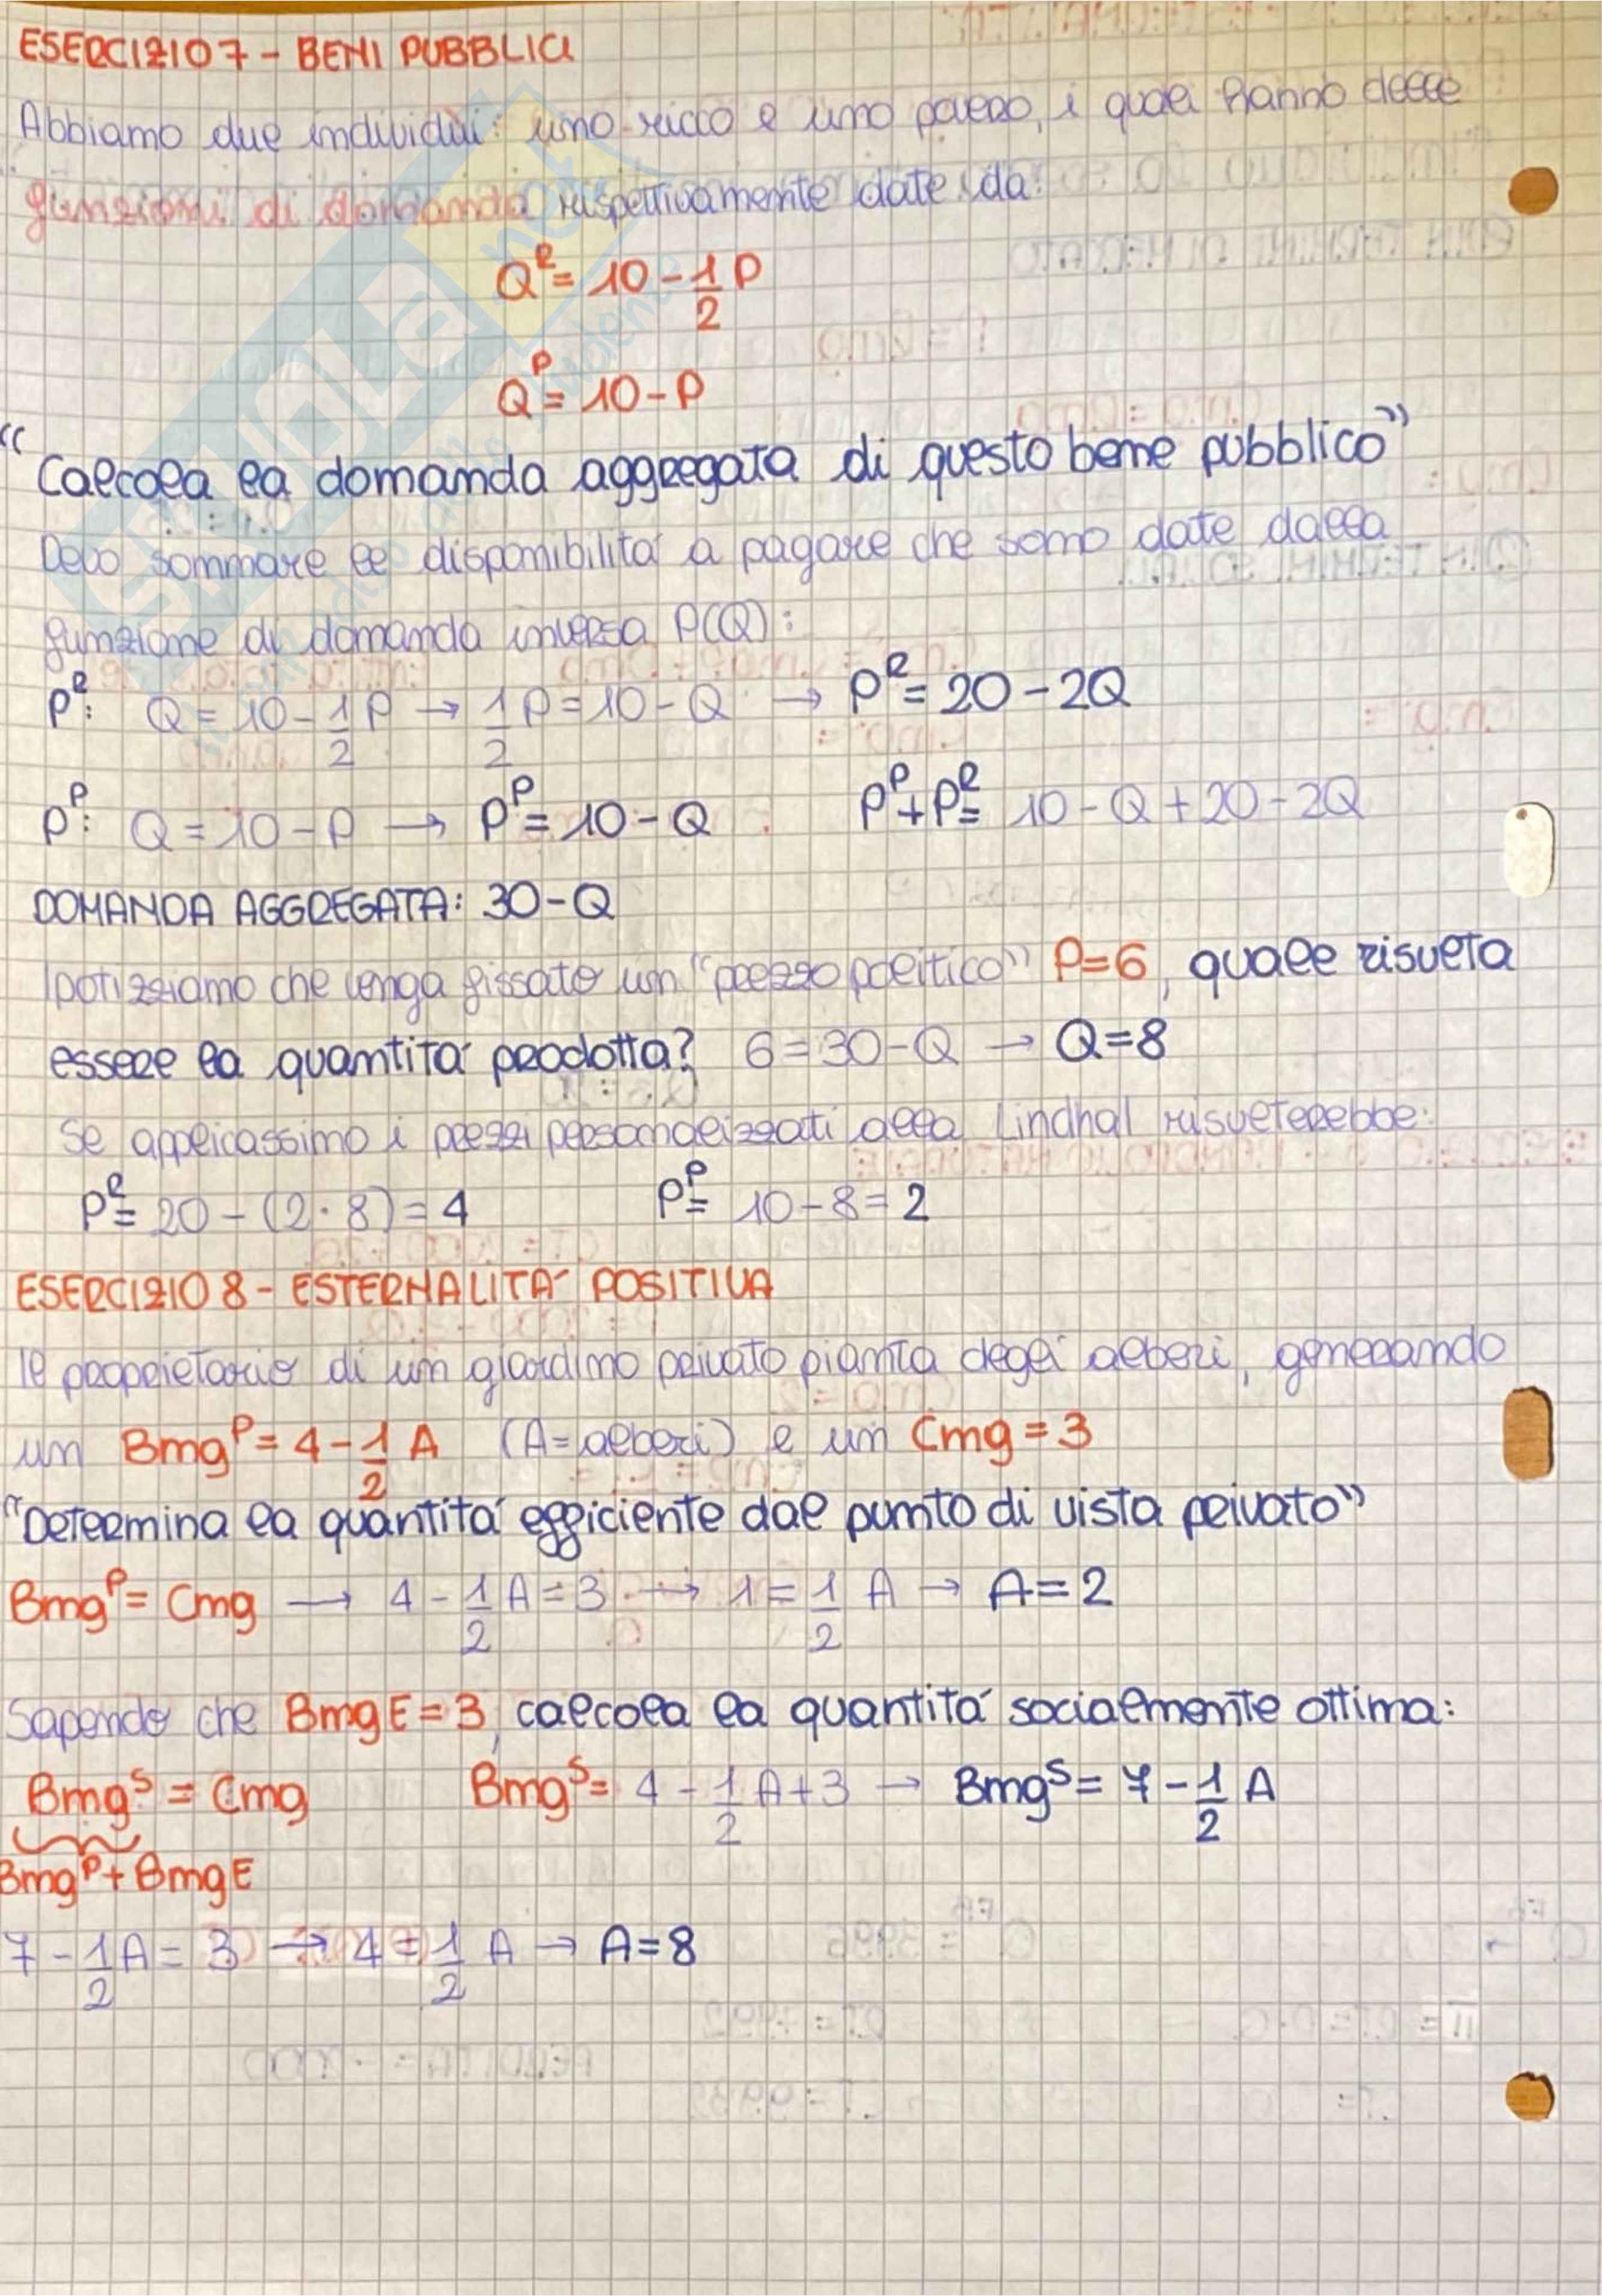 ESERCIZIO 7 - BENI PUBBLICI
Abbiamo due individui: uno ricco e uno povero, i quali hanno delle
funzioni di domanda rispettivamente date da:
Q^R = 10 - 1/2 P
Q^P = 10 - P
"Calcola la domanda aggregata di questo bene pubblico"
Devo sommare le disponibilità a pagare che sono date dalla
funzione di domanda inversa P(Q):
P^R: Q = 10 - 1/2 P → 1/2 P = 10 - Q → P^R = 20 - 2Q
P^P: Q = 10 - P → P^P = 10 - Q P^P + P^R = 10 - Q + 20 - 2Q
DOMANDA AGGREGATA: 30 - Q
Ipotizziamo che venga fissato un "prezzo politico" P=6, quale risulta
essere la quantità prodotta? 6 = 30 - Q → Q = 8
Se applicassimo i prezzi personalizzati alla Lindhal risulterebbe:
P^R = 20 - (2·8) = 4 P^P = 10 - 8 = 2
ESERCIZIO 8 - ESTERNALITÀ POSITIVA
Il proprietario di un giardino privato pianta degli alberi, generando
un Bmg^P = 4 - 1/2 A (A = alberi) e un Cmg = 3
"Determina la quantità efficiente dal punto di vista privato"
Bmg^P = Cmg → 4 - 1/2 A = 3 → 1 = 1/2 A → A = 2
Sapendo che BmgE = 3, calcola la quantità socialmente ottima:
Bmg^S = Cmg Bmg^S = 4 - 1/2 A + 3 → Bmg^S = 7 - 1/2 A
Bmg^P + BmgE
7 - 1/2 A = 3 → 4 = 1/2 A → A = 8